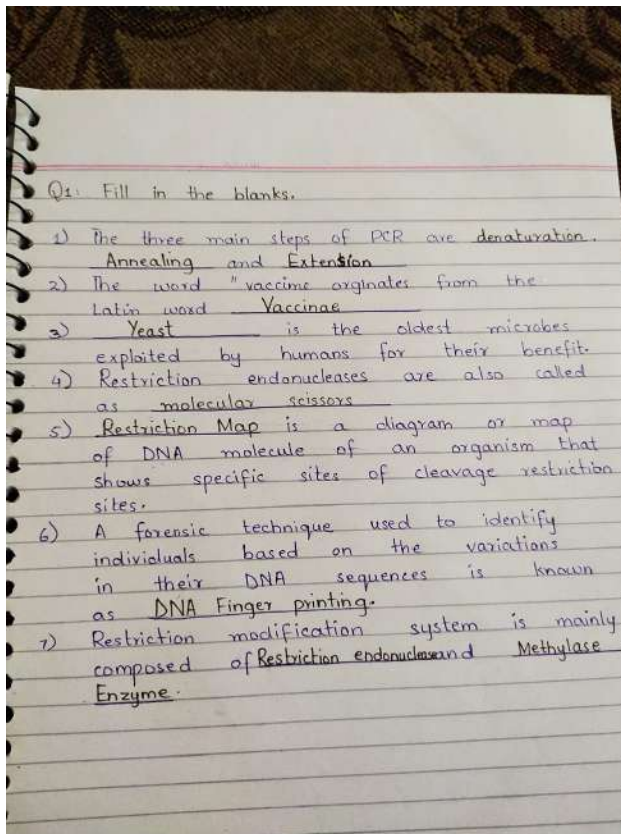 Q1: Fill in the blanks.
1) The three main steps of PCR are denaturation.
Annealing and Extension
2) The word "vaccime orginates from the
Latin word Vaccinae
3) Yeast is the oldest microbes
exploited by humans for their benefit.
4) Restriction endonucleases are also called
as molecular scissors
5) Restriction Map is a diagram or map
of DNA molecule of an organism that
shows specific sites of cleavage restriction
sites.
6) A forensic technique used to identify
individuals based on the variations
in their DNA sequences is known
as DNA Finger printing.
7) Restriction modification system is mainly
composed of Restriction endonuclease and Methylase
Enzyme.